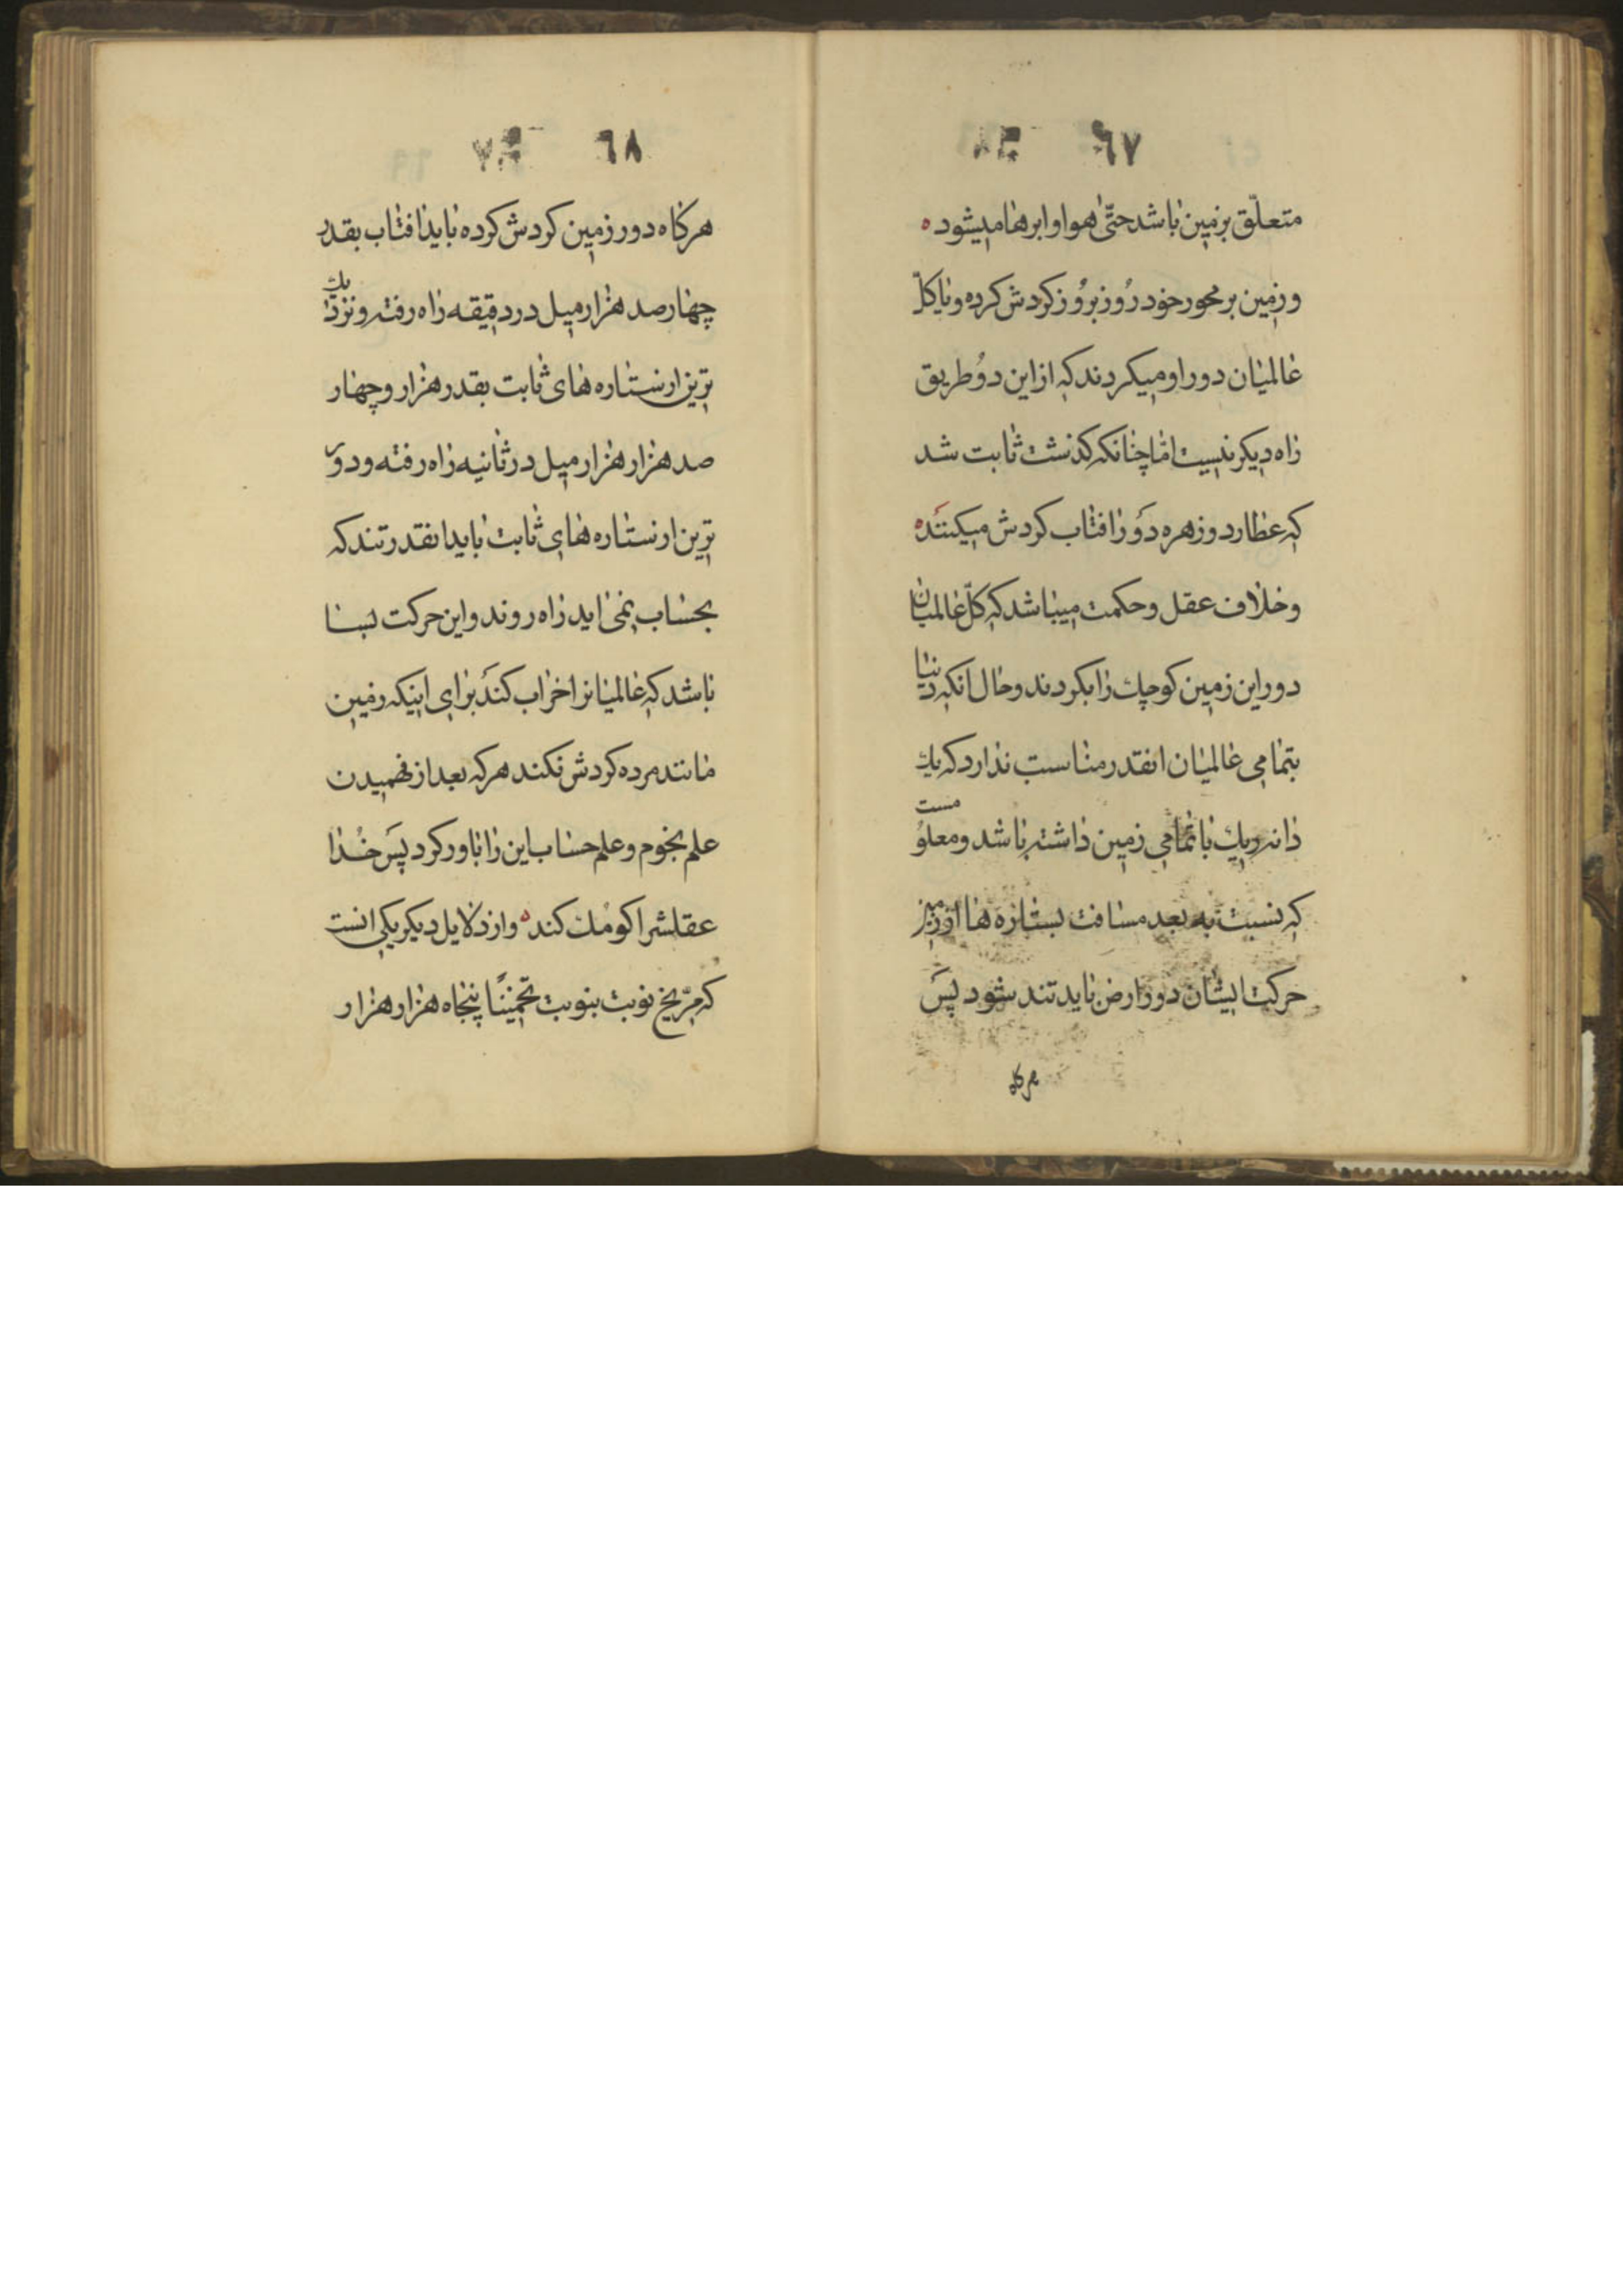 ٦٧
متعلّق بزمین باشد حتّی هوا و ابرها میشود ه
و زمین بر محور خود رُوز برُوز کردش کرده و یا کلّ
عالمیان دور او میکردند که از این دوُ طریق
راه دیکر نیست امّا چنانکه کذشت ثابت شد
که عطارد و زهره دَور افتاب کردش میکنَنده
و خلاف عقل و حکمت میباشد که کلّ عالمیان
دور این زمین کوچك را بکردند و حال انکه دنیا
بتمامی عالمیان انقدر مناسب ندارد که یك
دانه ریك با تمامی زمین داشته باشد و معلوُمست
که نسبت به بعد مسافت ستاره ها از زمین
حرکت ایشان دور ارض باید تند شود پسَ
هرکاه
٦٨
هرکاه دور زمین کردش کرده باید افتاب بقدر
چهار صد هزار میل در دقیقه راه رفته و نزدیك
ترین از ستاره های ثابت بقدر هزار و چهار
صد هزار هزار میل در ثانیه راه رفته و دور
ترین از ستاره های ثابت باید انقدر تند که
بحساب نمی اید راه روند و این حرکت بسا
باشد که عالمیانرا خراب کندَ برای اینکه زمین
مانند مرده کردش نکند هر که بعد از فهمیدن
علم نجوم و علم حساب این را باور کرد پسَ خُدا
عقلشرا کومُك کند ه و از دلایل دیکر یکی انست
که مرّیخ نوبت بنوبت تخمینًا پنجاه هزار هزار